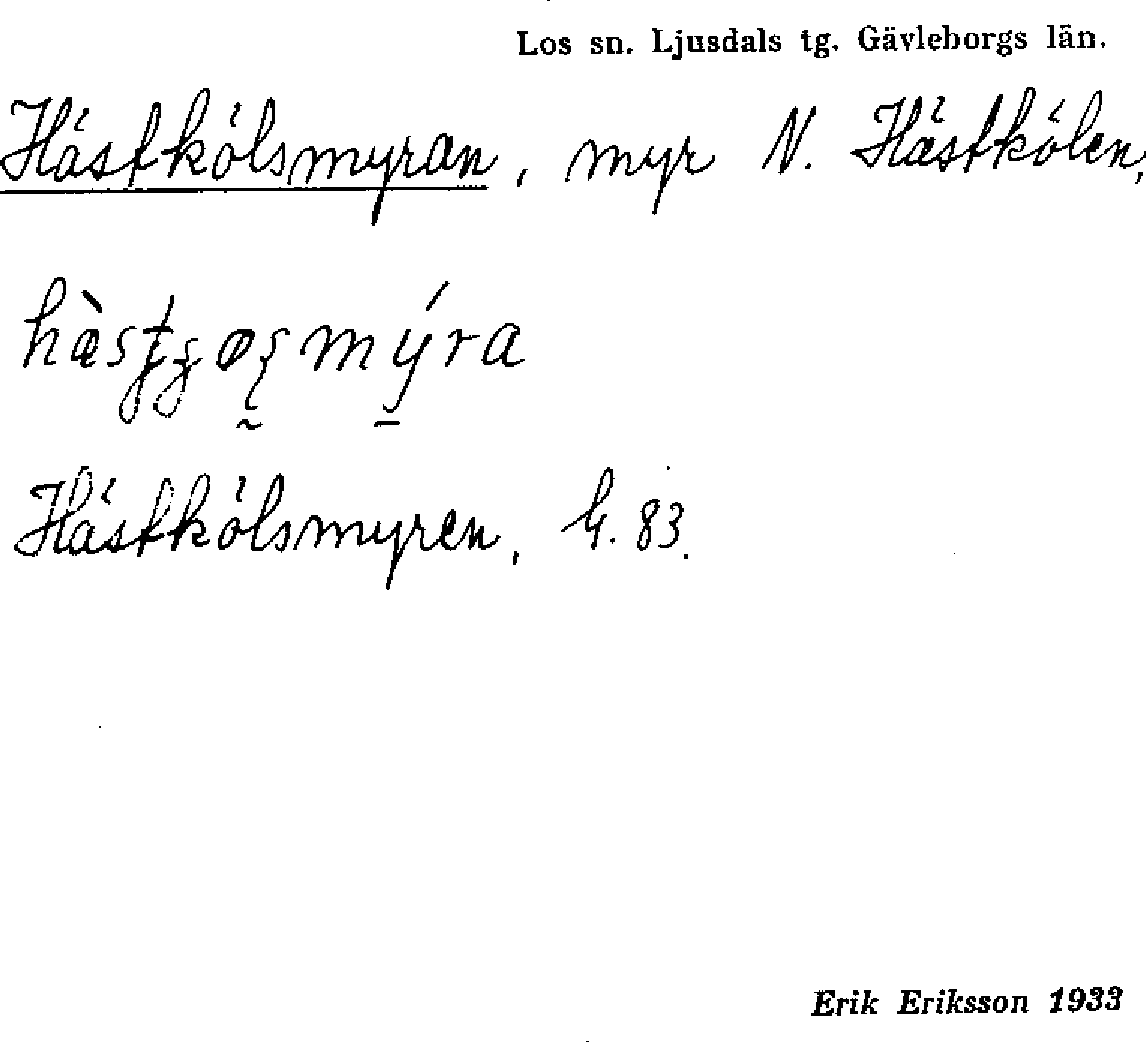 Los sn. Ljusdals tg. Gävleborgs län.
Hästkölsmyran, myr N. Hästkölen,
Hästkölsmyren, G. 83.
Erik Eriksson 1933